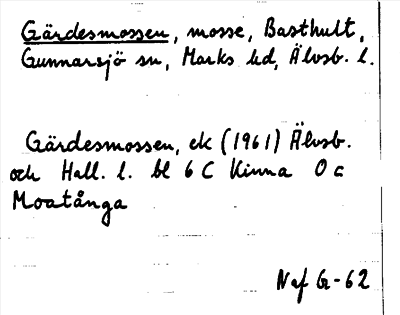 Gärdesmossen, mosse, Basthult,
Gunnarsjö sn, Marks hd, Älvsb. l.
Gärdesmossen, ek (1961) Älvsb.
och Hall. l. bl 6 C Kinna 0 c
Moatånga
Naf G-62